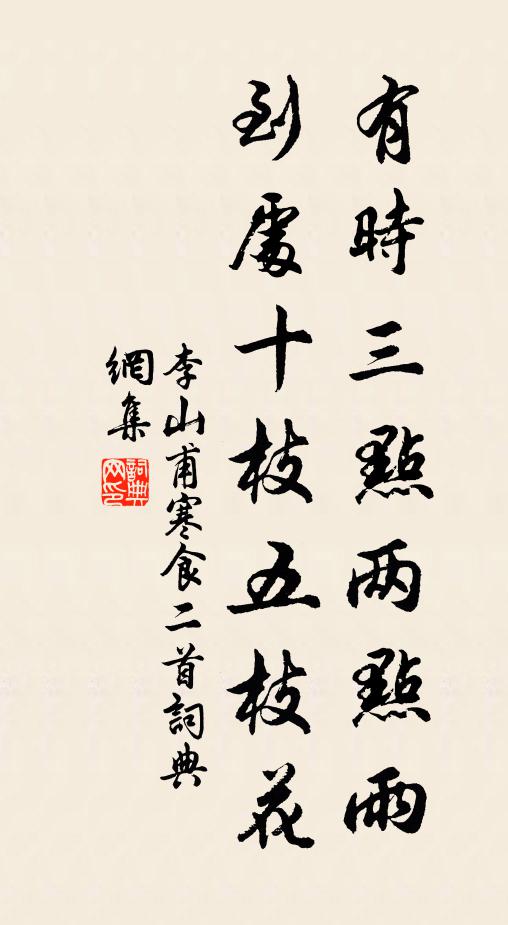 有時三點两點雨
到處十枝五枝花
李山甫寒食二首詞典
網集
詞典
网印